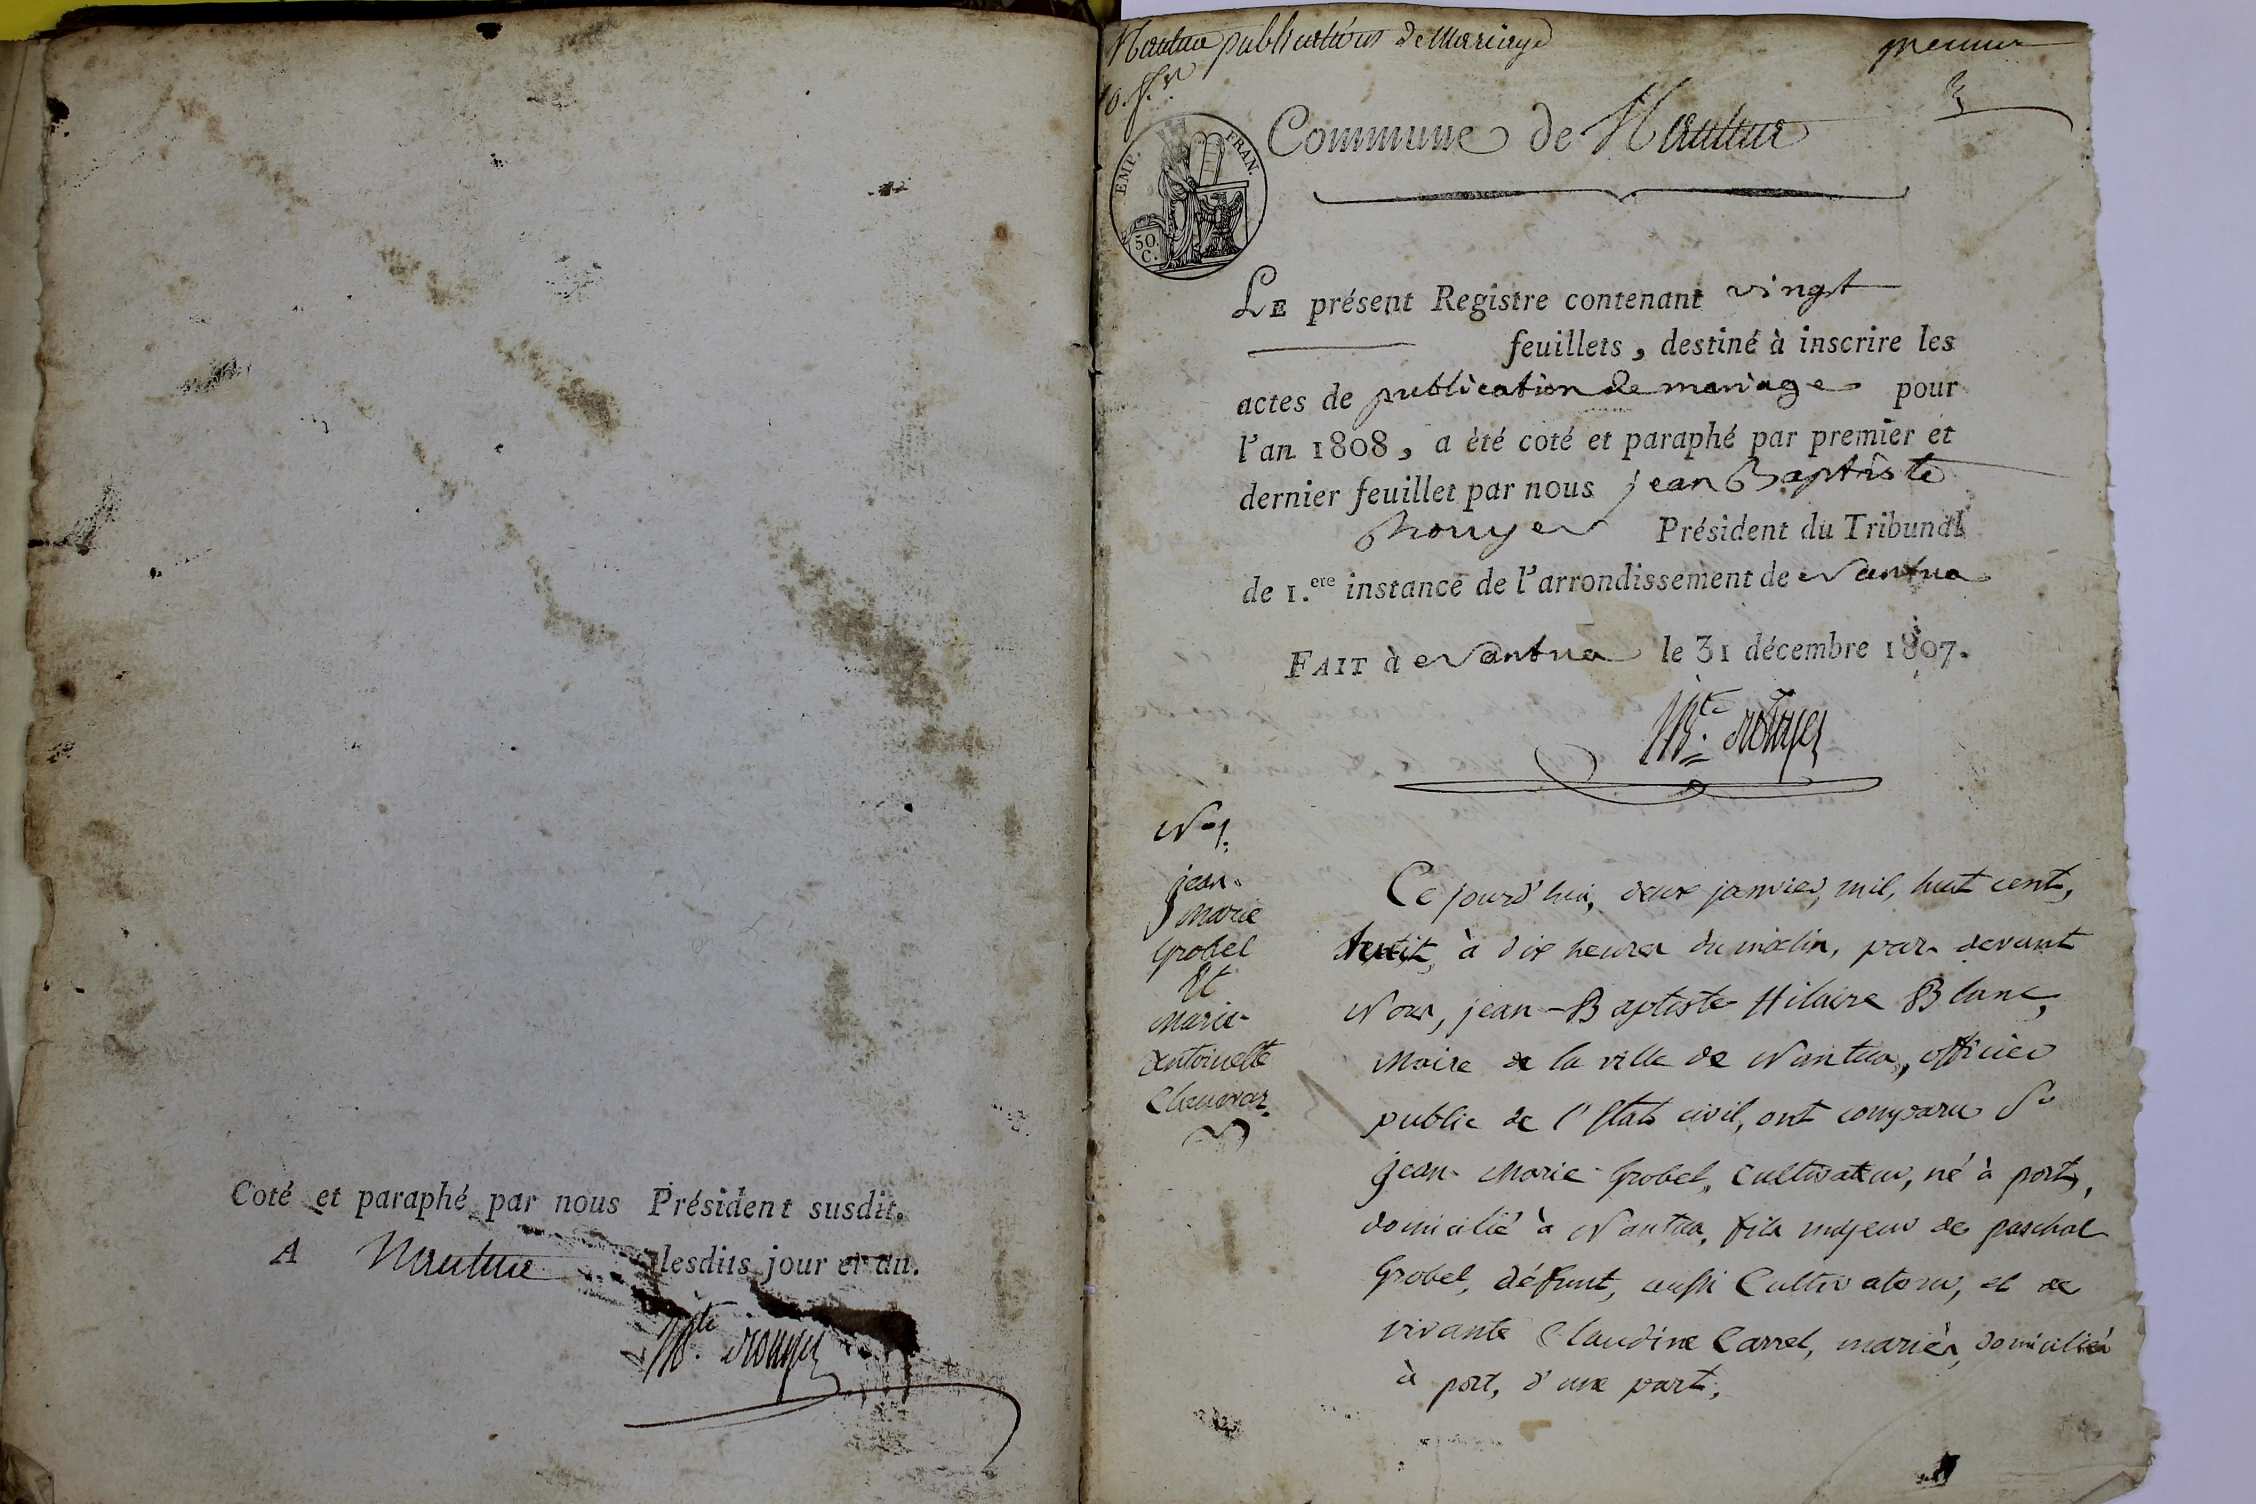 Coté et paraphé par nous Président susdit.
A Nantua lesdits jour et an.
Bte. rouyer
Nantua publications de Mariage
premier
Commune de Nantua
EMP. FRAN.
50 C.
LE présent Registre contenant vingt
feuillets, destiné à inscrire les
actes de publication de mariage pour
l'an 1808, a été coté et paraphé par premier et
dernier feuillet par nous jean Baptiste
Rouyer Président du Tribunal
de 1.ere instance de l'arrondissement de Nantua
FAIT à Nantua le 31 décembre 1807.
Bte. rouyer
N° 1.
jean-
Marie
Grobel
Et
Marie-
Antoinette
Chenevaz.
Ce jourd'hui, deux janvier, mil, huit cent,
huit, à dix heures du matin, par devant
Nous, jean-Baptiste Hilaire Blanc,
Maire de la ville de Nantua, officier
public de l'Etat civil, ont comparu Sr
jean-Marie Grobel, Cultivateur, né à port,
domicilié à Nantua, fils majeur de paschal
Grobel, défunt, aussi Cultivateur, et de
vivante Claudine Carrel, mariés, domiciliés
à port, d'une part,